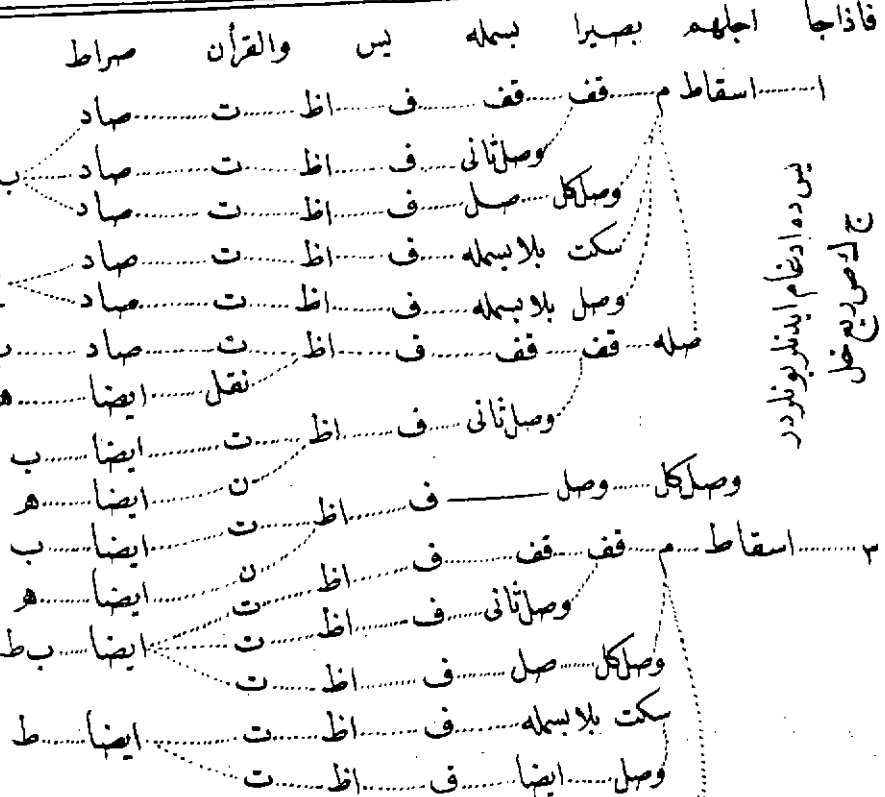 فاذاجا اجلهم بصيرا بسمله يس والقرأن صراط
ا اسقاط م قف قف ف اظ ت صاد
وصل ثانى ف اظ ت صاد ب
وصل كل صل ف اظ ت صاد
سكت بلا بسمله ف اظ ت صاد
وصل بلا بسمله ف اظ ت صاد
صله قف قف ف اظ ت صاد ب
نقل ايضا ه
وصل ثانى ف اظ ت ايضا ب
ن ايضا ه
وصل كل وصل ف اظ ت ايضا ب
ن ايضا ه
٣ اسقاط م قف قف ف اظ ت
وصل ثانى ف اظ ت ايضا ب ط
وصل كل صل ف اظ ت
سكت بلا بسمله ف اظ ت ايضا ط
وصل ايضا ف اظ ت
يس ده ادغام ايدنلر بونلردر